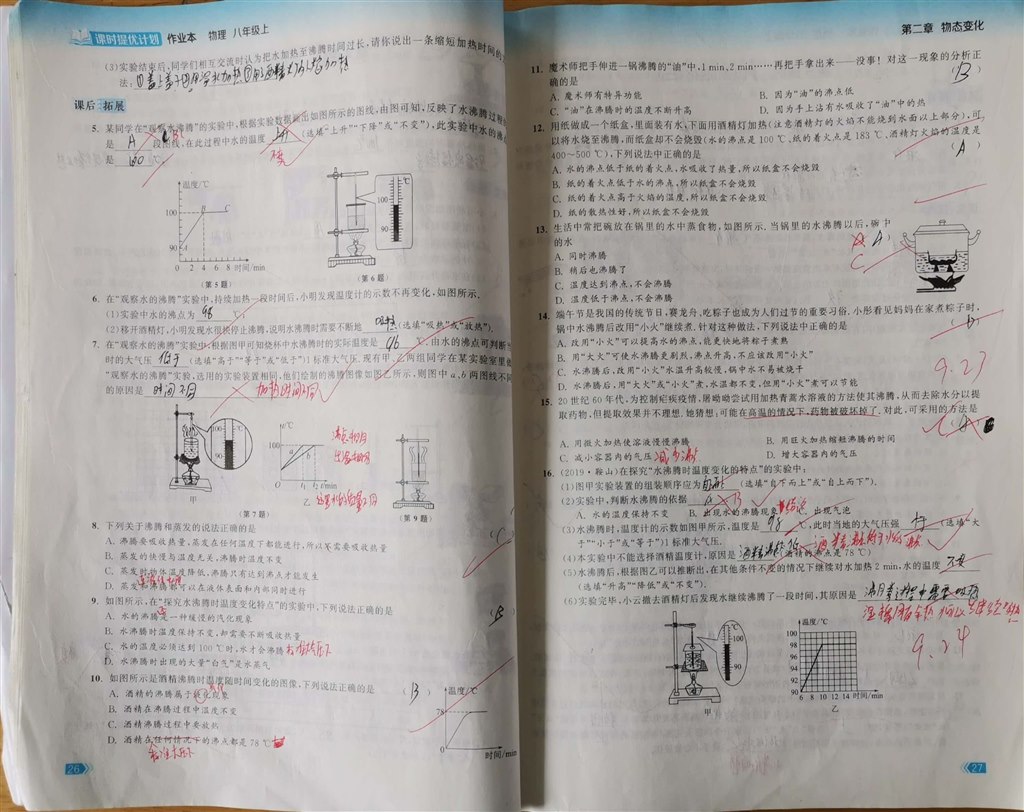 课时提优计划 作业本 物理 八年级上
(3)实验结束后,同学们相互交流时认为把水加热至沸腾时间过长,请你说出一条缩短加热时间的方
法:
课后·拓展
5. 某同学在“观察水沸腾”的实验中,根据实验数据画出如图所示的图线,由图可知,反映了水沸腾过程的
是 段图线,在此过程中水的温度 上升 (选填“上升”“下降”或“不变”),此实验中水的沸点
是 100 ℃
不变
温度/℃
100
90
A
B
C
0 2 4 6 8 时间/min
(第5题)
℃
100
90
(第6题)
6. 在“观察水的沸腾”实验中,持续加热一段时间后,小明发现温度计的示数不再变化,如图所示.
(1)实验中水的沸点为 98 ℃
(2)移开酒精灯,小明发现水很快停止沸腾,说明水沸腾时需要不断地 吸热 (选填“吸热”或“放热”).
7. 在“观察水的沸腾”实验中,根据图甲可知烧杯中水沸腾时的实际温度是 96 ℃,由水的沸点可判断当
时的大气压 低于 (选填“高于”“等于”或“低于”)1标准大气压.现有甲、乙两组同学在某实验室里做
“观察水的沸腾”实验,选用的实验装置相同,他们绘制的沸腾图像如图乙所示,则图中a、b两图线不同
的原因是 时间不同
加热时间不同
100
90
甲
t/℃
100
a
b
t₁ t₂ t/min
乙
(第7题)
沸点相同
(第9题)
8. 下列关于沸腾和蒸发的说法正确的是 (C)
A. 沸腾要吸收热量,蒸发在任何温度下都能进行,所以不需要吸收热量
B. 蒸发的快慢与温度无关,沸腾时温度不变
C. 蒸发时物体温度降低,沸腾只有达到沸点才能发生
D. 蒸发和沸腾都可以在液体表面和内部同时进行
9. 如图所示,在“探究水沸腾时温度变化特点”的实验中,下列说法正确的是 (B)
A. 水的沸腾是一种缓慢的汽化现象
B. 水沸腾时温度保持不变,却需要不断吸收热量
C. 水的温度必须达到100 ℃时,水才会沸腾
D. 水沸腾时出现的大量“白气”是水蒸气
10. 如图所示是酒精沸腾时温度随时间变化的图像,下列说法正确的是 (B
A. 酒精的沸腾属于液化现象
B. 酒精在沸腾过程中温度不变
C. 酒精沸腾过程中要放热
D. 酒精在任何情况下的沸点都是78 ℃
标准大气压下
温度/℃
78
0
时间/min
26
第二章 物态变化
11. 魔术师把手伸进一锅沸腾的“油”中,1 min、2 min……再把手拿出来——没事!对这一现象的分析正
确的是 (B)
A. 魔术师有特异功能 B. 因为“油”的沸点低
C. “油”在沸腾时的温度不断升高 D. 因为手上沾有水吸收了“油”中的热
12. 用纸做成一个纸盒,里面装有水,下面用酒精灯加热(注意酒精灯的火焰不能烧到水面以上部分),可
以将水烧至沸腾,而纸盒却不会烧毁(水的沸点是100 ℃、纸的着火点是183 ℃、酒精灯火焰的温度是
400~500 ℃),下列说法中正确的是 (A)
A. 水的沸点低于纸的着火点,水吸收了热量,所以纸盒不会烧毁
B. 纸的着火点低于水的沸点,所以纸盒不会烧毁
C. 纸的着火点高于火焰的温度,所以纸盒不会烧毁
D. 纸的散热性好,所以纸盒不会烧毁
13. 生活中常把碗放在锅里的水中蒸食物,如图所示.当锅里的水沸腾以后,碗中
的水 A)
C
A. 同时沸腾
B. 稍后也沸腾了
C. 温度达到沸点,不会沸腾
D. 温度低于沸点,不会沸腾
14. 端午节是我国的传统节日,赛龙舟,吃粽子也成为人们过节的重要习俗.小彤看见妈妈在家煮粽子时,
锅中水沸腾后改用“小火”继续煮.针对这种做法,下列说法中正确的是 (D)
A. 改用“小火”可以提高水的沸点,能更快地将粽子煮熟
B. 用“大火”可使水沸腾更剧烈,沸点升高,不应该改用“小火”
C. 水沸腾后,改用“小火”水温升高较慢,锅中水不易被烧干
D. 水沸腾后,用“大火”或“小火”煮,水温都不变,但用“小火”煮可以节能
9.23
15. 20世纪60年代,为控制疟疾疫情,屠呦呦尝试用加热青蒿水溶液的方法使其沸腾,从而去除水分以提
取药物,但提取效果并不理想.她猜想:可能在高温的情况下,药物被破坏掉了.对此,可采用的方法是
C (A)
A. 用微火加热使溶液慢慢沸腾 B. 用旺火加热缩短沸腾的时间
C. 减小容器内的气压 D. 增大容器内的气压
16. (2019·鞍山)在探究“水沸腾时温度变化的特点”的实验中:
(1)图甲实验装置的组装顺序应为 (选填“自下而上”或“自上而下”).
(2)实验中,判断水沸腾的依据 B
A. 水的温度保持不变 B. 出现水的沸腾现象 出现气泡
(3)水沸腾时,温度计的示数如图甲所示,温度是 98 ℃,此时当地的大气压强 (选填“大
于”“小于”或“等于”)1标准大气压.
(4)本实验中不能选择酒精温度计,原因是 (酒精的沸点是78 ℃)
(5)水沸腾后,根据图乙可以推断出,在其他条件不变的情况下继续对水加热2 min,水的温度 不变
(选填“升高”“降低”或“不变”).
(6)实验完毕,小云撤去酒精灯后发现水继续沸腾了一段时间,其原因是
9.24
℃
100
90
甲
温度/℃
100
98
96
94
92
90
6 8 10 12 14 时间/min
乙
27